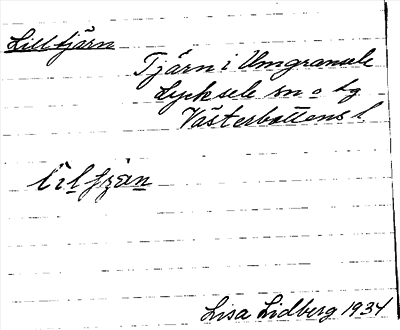 Lilltjärn
Tjärn i Umgransele
Lycksele sn o tg
Västerbottens l
Lisa Lidberg 1934